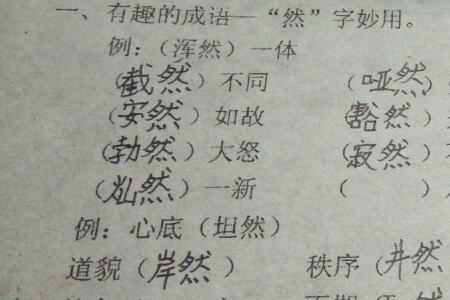 一、有趣的成语—“然”字妙用。
例：（浑然）一体
（截然）不同 （哑然）
（安然）如故 （豁然）
（勃然）大怒 （寂然）
（灿然）一新 （ ）
例：心底（坦然）
道貌（岸然） 秩序（井然